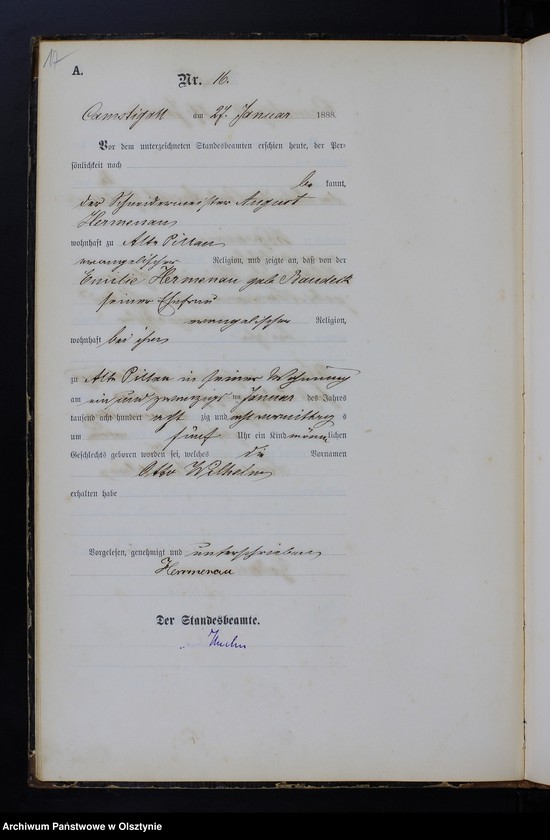 17
A.
Nr. 16.
Camstigall am 27. Januar 1888.
Vor dem unterzeichneten Standesbeamten erschien heute, der Per-
sönlichkeit nach
be kannt,
der Schneidermeister August
Hermenau
wohnhaft zu Alt Pillau
evangelischer Religion, und zeigte an, daß von der
Emilie Hermenau geb.
seiner Ehefrau
evangelischer Religion,
wohnhaft bei ihm
zu Alt Pillau in seiner Wohnung
am ein und zwanzigs ten Januar des Jahres
tausend acht hundert acht zig und acht s
um fünf Uhr ein Kind männ lichen
Geschlechts geboren worden sei, welches die Vornamen
Otto Wilhelm
erhalten habe
Vorgelesen, genehmigt und unterschrieben
Hermenau
Der Standesbeamte.
Archiwum Państwowe w Olsztynie